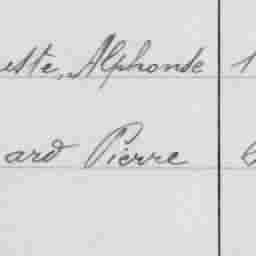 uste, Alphonse 1
ard Pierre